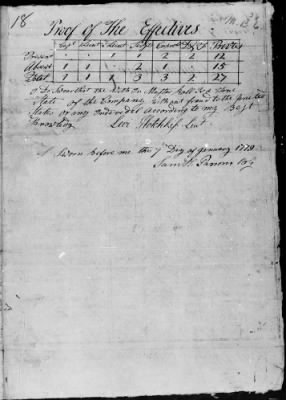 18
Proof of The Effectives
Capt Lieut Lieut Serjt Corporl D&F Privates
Present - - 1 1 2 2 12
Absent 1 1 - 2 1 - 15
Total 1 1 1 3 3 2 27
I Do Swear that the within Muster Roll is a True
State of the Company without fraud to the United
States or any Individual according to my Best
Knowledg
Levi Hotchkiss Lieut
Sworn before me this 7th Day of January 1779
Saml H. Parsons B G